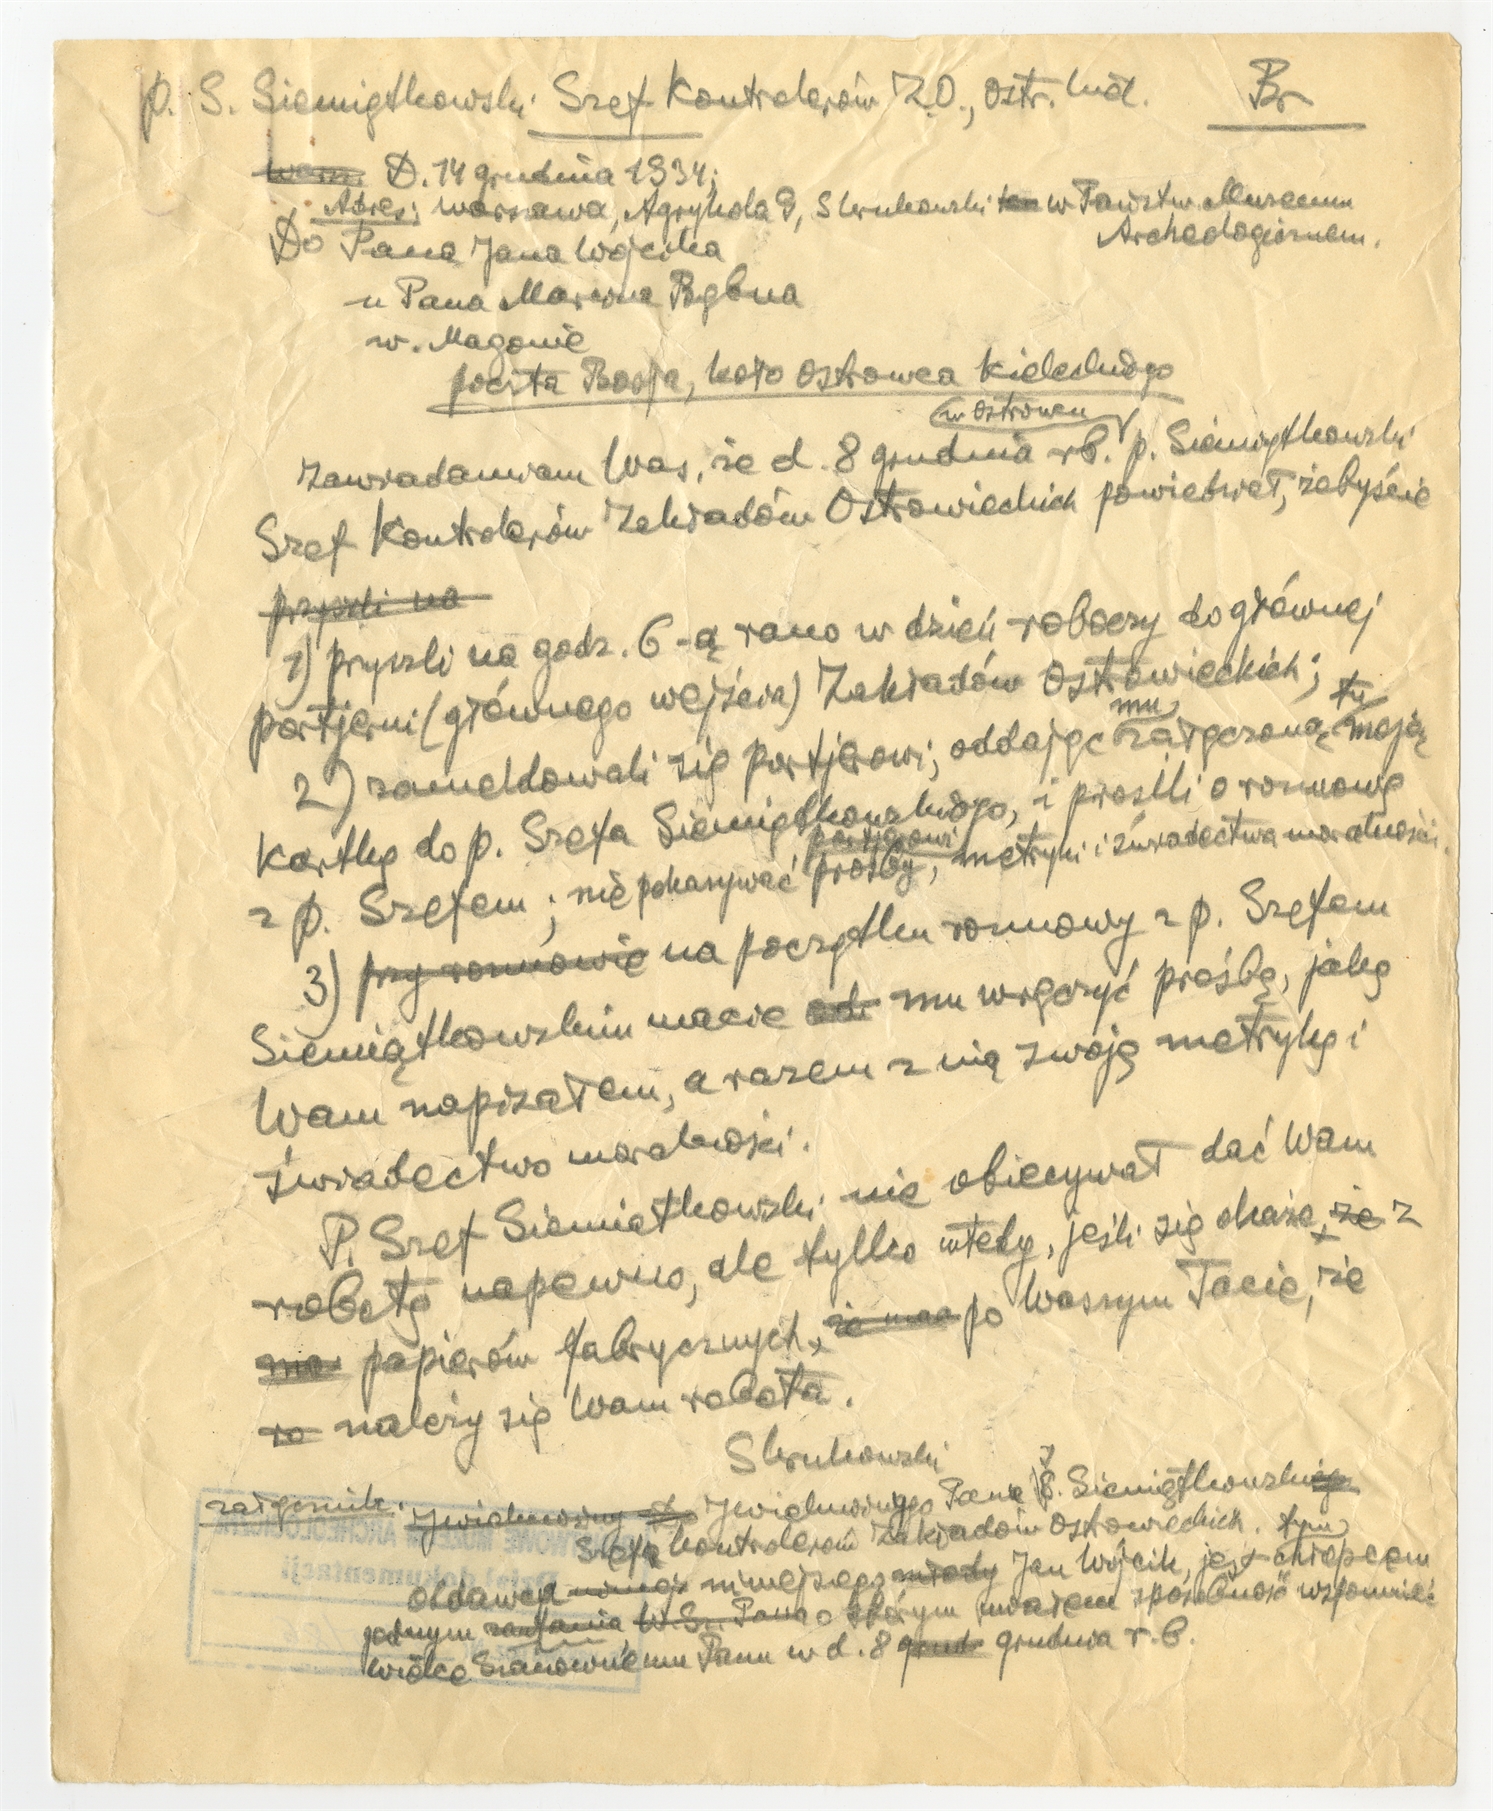 p. S. Siemiątkowski Szef Kontrolerów Z.O., Ostr. Br
D. 14 grudnia 1934;
Adres: Warszawa, Agrykola 9, S Krukowski w Państw. Muzeum
Archeologicznem.
Do Pana Jana Wójcika
u Pana Marcina
w. Magonie
poczta Bodja, koło Ostrowca Kieleckiego
w Ostrowcu
Zawiadamiam Was, że d. 8 grudnia rb. p. Siemiątkowski
Szef Kontrolerów Zakładów Ostrowieckich powiedział, żebyście
przyszli na
1) przyszli na godz. 6-ą rano w dzień roboczy do głównej
portjerni (głównego wejścia) Zakładów Ostrowieckich;
2) zameldowali się portjerowi, oddając mu załączoną tu moją
kartkę do p. Szefa Siemiątkowskiego, i prosili o rozmowę
z p. Szefem; nie pokazywać portjerowi prośby, metryki i świadectwa moralności.
3) przy rozmowie na początku rozmowy z p. Szefem
Siemiątkowskim macie mu wręczyć prośbę, jaką
Wam napisałem, a razem z nią swoją metrykę i
świadectwo moralności.
P. Szef Siemiątkowski nie obiecywał dać Wam
robotę napewno, ale tylko wtedy, jeśli się okaże, że z
papierów fabrycznych, że ma po Waszym Tacie, że
należy się Wam robota.
S Krukowski
załącznik. Jwielmożny Do Jwielmożnego Pana S. Siemiątkowskiego
Szefa Kontrolerów Zakładów Ostrowieckich.
Oddawca niniejszego młody Jan Wójcik, jest tym chłopcem
o którym miałem sposobność wspomnieć
Wielce Szanownemu Panu w d. 8 grud grudnia r. b.